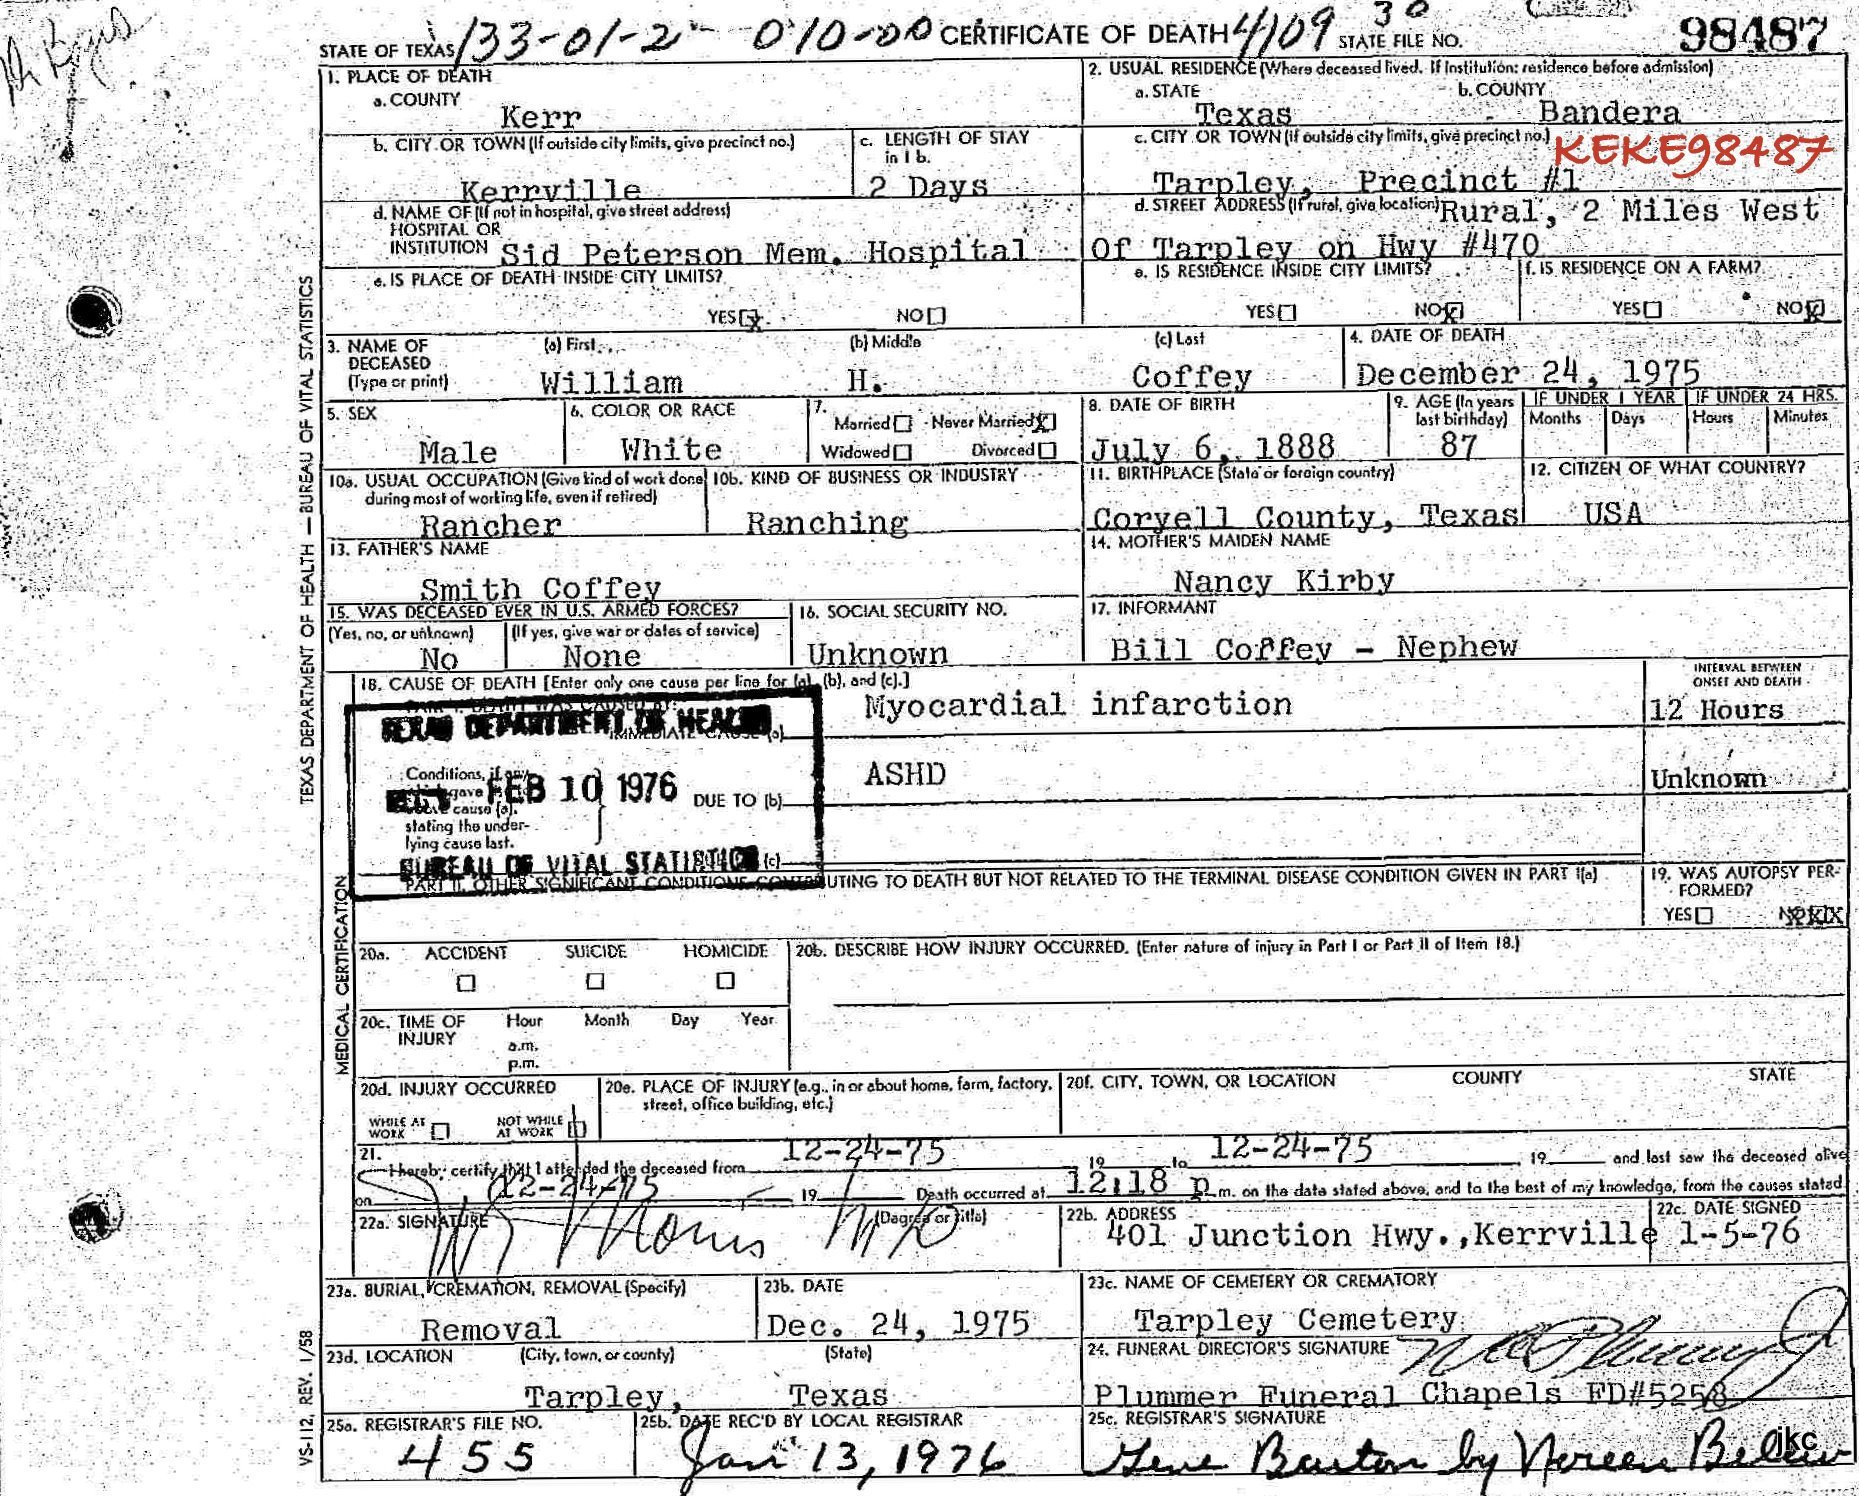 STATE OF TEXAS 133-01-2 - 010-00 CERTIFICATE OF DEATH 4109 30 STATE FILE NO. 98487
1. PLACE OF DEATH
a. COUNTY
Kerr
2. USUAL RESIDENCE (Where deceased lived. If institution: residence before admission)
a. STATE b. COUNTY
Texas Bandera
b. CITY OR TOWN (If outside city limits, give precinct no.)
Kerrville
c. LENGTH OF STAY
in 1 b.
2 Days
c. CITY OR TOWN (If outside city limits, give precinct no.)
KEKE98487
Tarpley, Precinct #1
d. NAME OF (If not in hospital, give street address)
HOSPITAL OR
INSTITUTION Sid Peterson Mem. Hospital
d. STREET ADDRESS (If rural, give location) Rural, 2 Miles West
Of Tarpley on Hwy #470
e. IS PLACE OF DEATH INSIDE CITY LIMITS?
YES X NO
e. IS RESIDENCE INSIDE CITY LIMITS?
YES NO X
f. IS RESIDENCE ON A FARM?
YES NO X
3. NAME OF
DECEASED
(Type or print)
(a) First (b) Middle (c) Last
William H. Coffey
4. DATE OF DEATH
December 24, 1975
5. SEX
Male
6. COLOR OR RACE
White
7.
Married Never Married X
Widowed Divorced
8. DATE OF BIRTH
July 6, 1888
9. AGE (In years
last birthday)
87
IF UNDER 1 YEAR
Months Days
IF UNDER 24 HRS.
Hours Minutes
10a. USUAL OCCUPATION (Give kind of work done
during most of working life, even if retired)
Rancher
10b. KIND OF BUSINESS OR INDUSTRY
Ranching
11. BIRTHPLACE (State or foreign country)
Coryell County, Texas
12. CITIZEN OF WHAT COUNTRY?
USA
13. FATHER'S NAME
Smith Coffey
14. MOTHER'S MAIDEN NAME
Nancy Kirby
15. WAS DECEASED EVER IN U.S. ARMED FORCES?
(Yes, no, or unknown) (If yes, give war or dates of service)
No None
16. SOCIAL SECURITY NO.
Unknown
17. INFORMANT
Bill Coffey - Nephew
TEXAS DEPARTMENT OF HEALTH — BUREAU OF VITAL STATISTICS
MEDICAL CERTIFICATION
18. CAUSE OF DEATH [Enter only one cause per line for (a), (b), and (c).]
INTERVAL BETWEEN
ONSET AND DEATH
PART I. DEATH WAS CAUSED BY:
IMMEDIATE CAUSE (a) Myocardial infarction 12 Hours
TEXAS DEPARTMENT OF HEALTH
Conditions, if any,
which gave rise to
above cause (a),
stating the under-
lying cause last.
FEB 10 1976
DUE TO (b) ASHD Unknown
(c)
BUREAU OF VITAL STATISTICS
PART II. OTHER SIGNIFICANT CONDITIONS CONTRIBUTING TO DEATH BUT NOT RELATED TO THE TERMINAL DISEASE CONDITION GIVEN IN PART I(a)
19. WAS AUTOPSY PER-
FORMED?
YES NO X
20a. ACCIDENT SUICIDE HOMICIDE
20b. DESCRIBE HOW INJURY OCCURRED. (Enter nature of injury in Part I or Part II of Item 18.)
20c. TIME OF
INJURY
Hour Month Day Year
a.m.
p.m.
20d. INJURY OCCURRED
WHILE AT
WORK
NOT WHILE
AT WORK
20e. PLACE OF INJURY (e.g., in or about home, farm, factory,
street, office building, etc.)
20f. CITY, TOWN, OR LOCATION COUNTY STATE
21.
I hereby certify that I attended the deceased from 12-24-75 19 to 12-24-75 19 and last saw the deceased alive
on 12-24-75 19 Death occurred at 12:18 p m. on the date stated above, and to the best of my knowledge, from the causes stated
22a. SIGNATURE (Degree or title)
MD
22b. ADDRESS
401 Junction Hwy., Kerrville
22c. DATE SIGNED
1-5-76
23a. BURIAL, CREMATION, REMOVAL (Specify)
Removal
23b. DATE
Dec. 24, 1975
23c. NAME OF CEMETERY OR CREMATORY
Tarpley Cemetery
23d. LOCATION (City, town, or county) (State)
Tarpley, Texas
24. FUNERAL DIRECTOR'S SIGNATURE
Plummer Funeral Chapels FD#5258
25a. REGISTRAR'S FILE NO.
455
25b. DATE REC'D BY LOCAL REGISTRAR
Jan 13, 1976
25c. REGISTRAR'S SIGNATURE
Gene Barton by Noreen Belew
jkc
VS-112, REV. 1/58